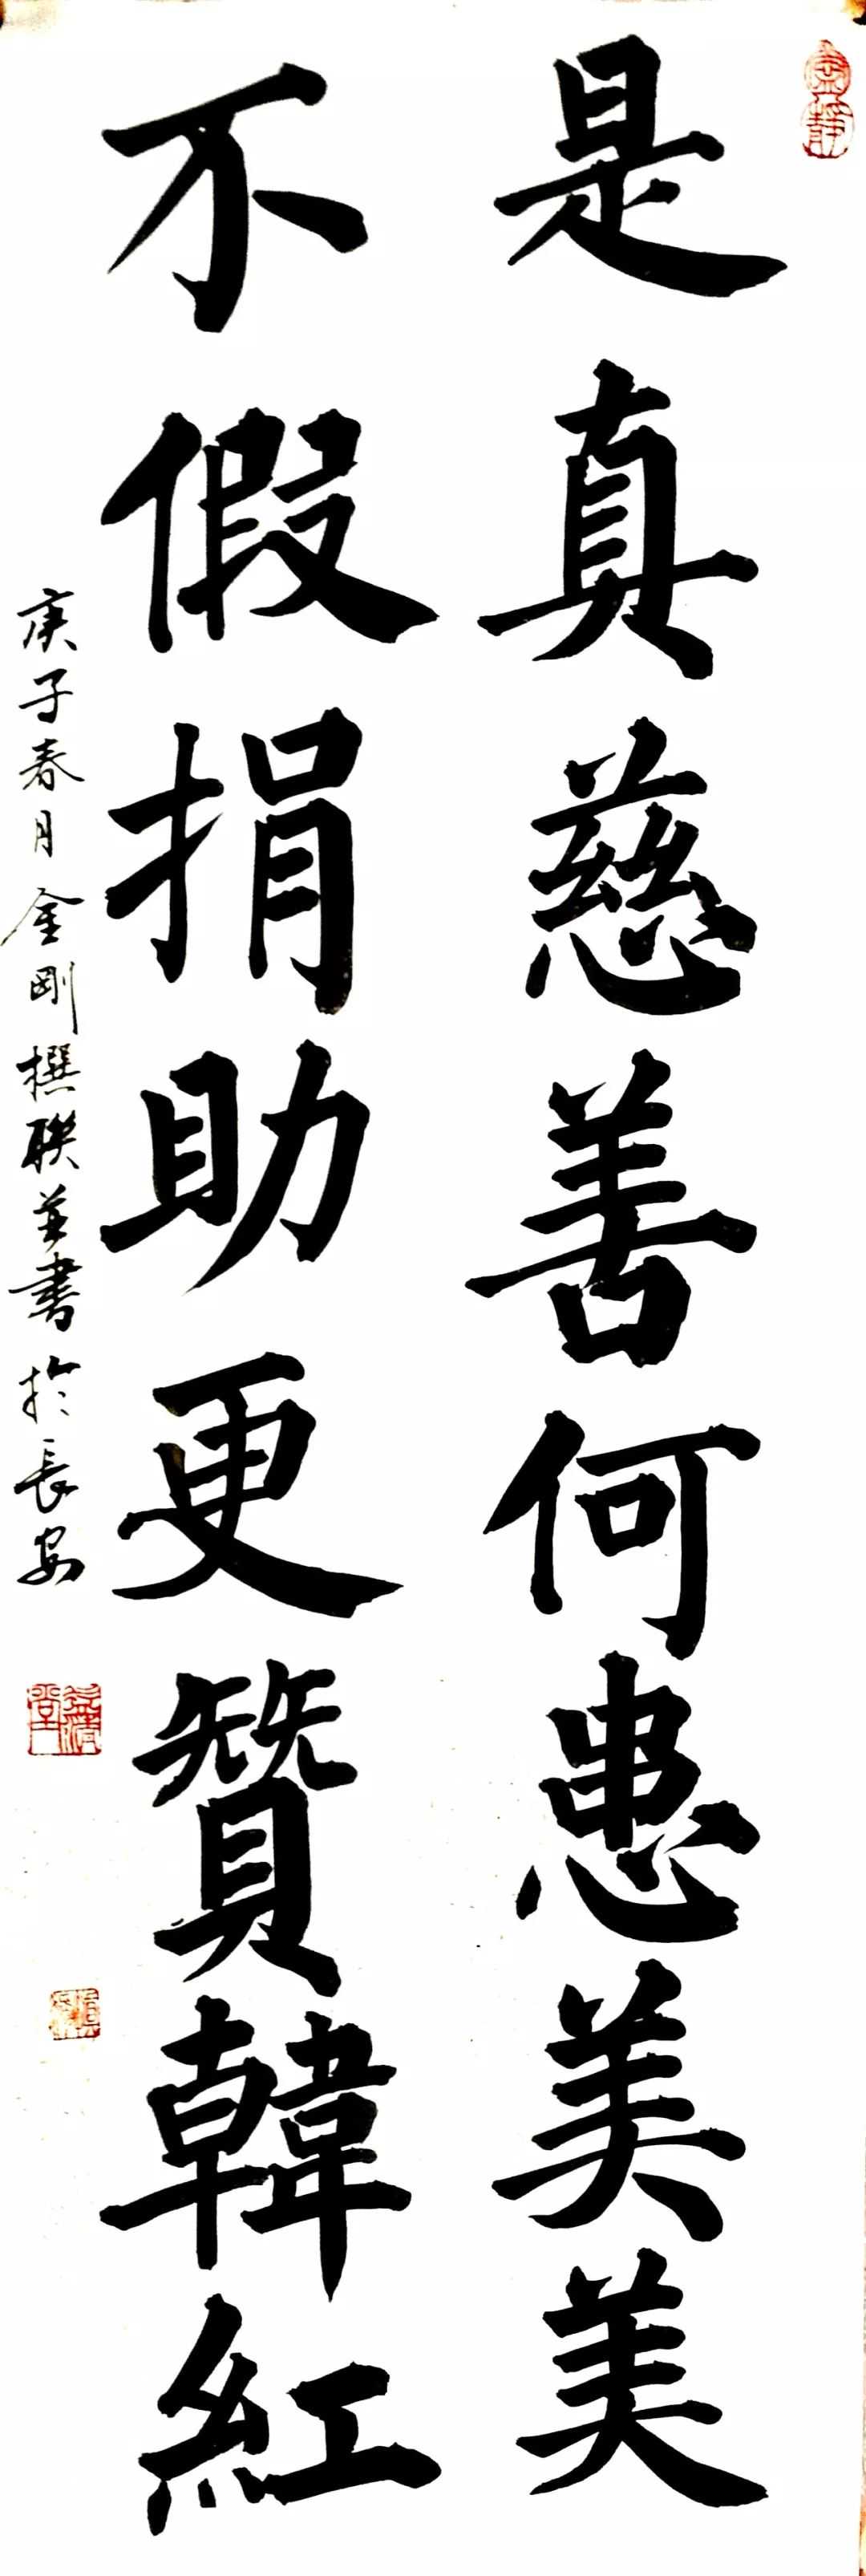 是真慈善何患美美
不假捐助更贊韓紅
庚子春月金剛撰聯並書於長安